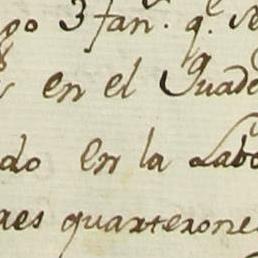 go 3 fan.ˢ q.ᵉ se
en el Quade
do en la Labo
aes quarterone